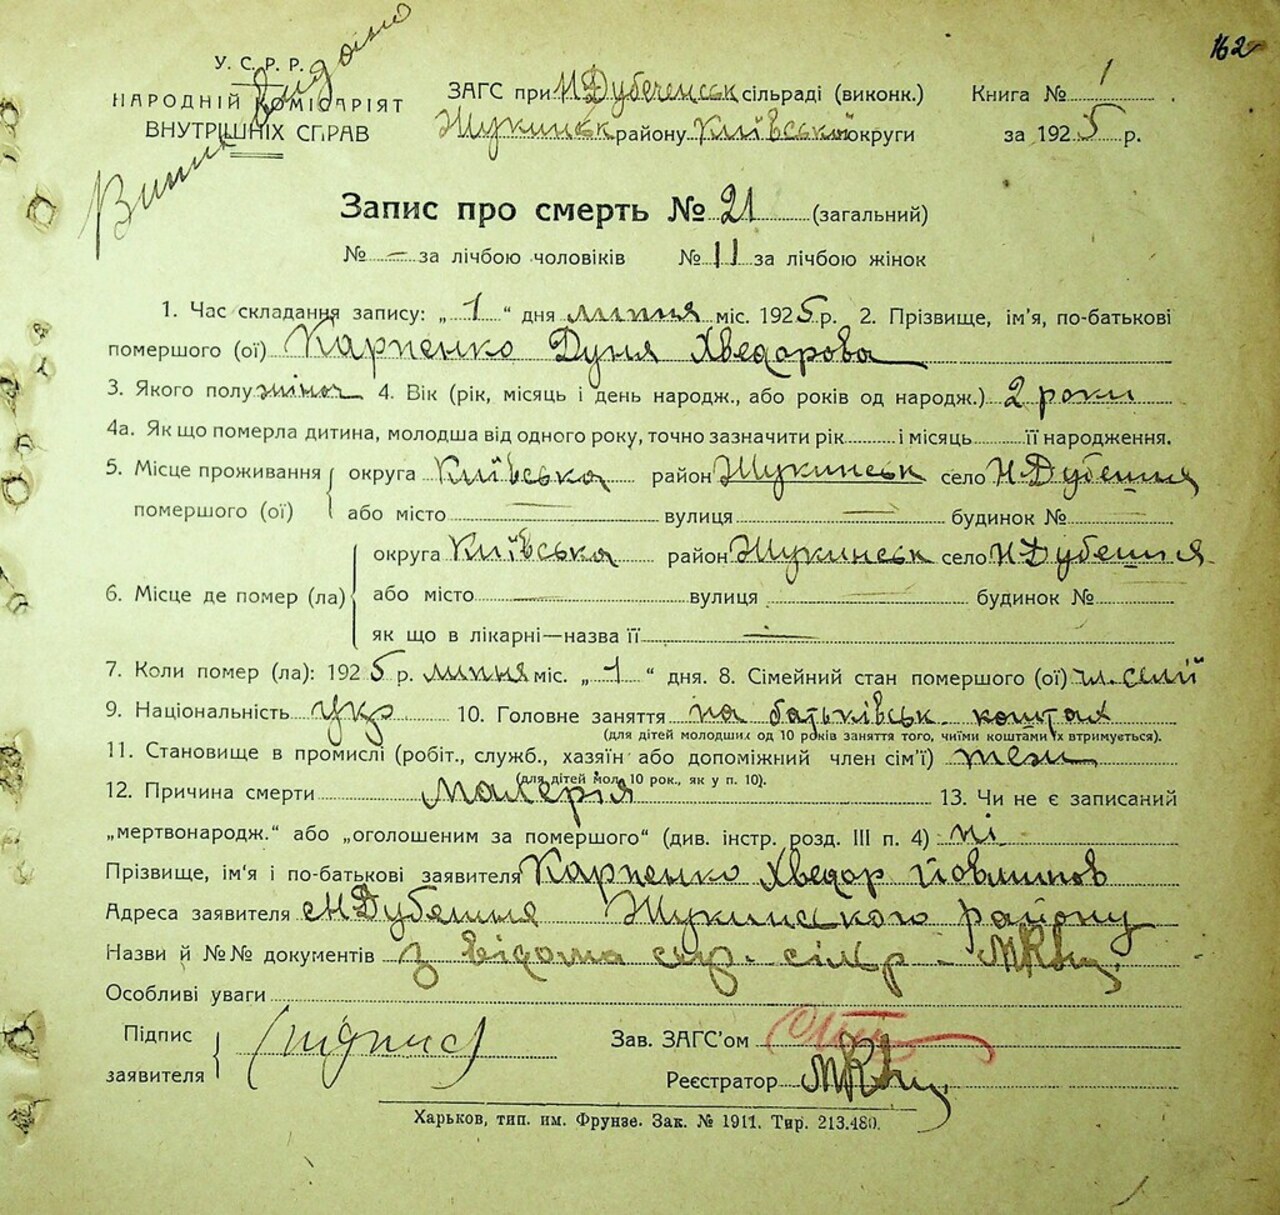 162
Витяг видано
У. С. Р. Р.
НАРОДНІЙ КОМІСАРІЯТ
ВНУТРІШНІХ СПРАВ
ЗАГС при Н Дубеченськ сільраді (виконк.)
Жукинськ району Київської округи
Книга № 1
за 1925 р.
Запис про смерть № 21 (загальний)
№ – за лічбою чоловіків № 11 за лічбою жінок
1. Час складання запису: „1“ дня липня міс. 1925 р. 2. Прізвище, ім'я, по-батькові
помершого (ої) Карпенко Дуня Хведорова
3. Якого полу жіноч 4. Вік (рік, місяць і день народж., або років од народж.) 2 роки
4а. Як що померла дитина, молодша від одного року, точно зазначити рік і місяць її народження.
5. Місце проживання помершого (ої)
округа Київська район Жукинськ село Н Дубешня
або місто — вулиця — будинок № —
6. Місце де помер (ла)
округа Київська район Жукинськ село Н Дубешня
або місто — вулиця — будинок №
як що в лікарні—назва її —
7. Коли помер (ла): 1925 р. липня міс. „1“ дня. 8. Сімейний стан помершого (ої) чл. сімї
9. Національність укр 10. Головне заняття на батьківськ. коштах
(для дітей молодших од 10 років заняття того, чиїми коштами їх втримується).
11. Становище в промислі (робіт., служб., хазяїн або допоміжний член сім'ї) теж
(для дітей мол. 10 рок., як у п. 10).
12. Причина смерти Малерія 13. Чи не є записаний
„мертвонародж.“ або „оголошеним за помершого“ (див. інстр. розд. III п. 4) ні
Прізвище, ім'я і по-батькові заявителя Карпенко Хведор
Адреса заявителя Н Дубешня Жукинського району
Назви й №№ документів з відома сільр.
Особливі уваги
Підпис заявителя (підпис)
Зав. ЗАГС'ом
Реєстратор
Харьков, тип. им. Фрунзе. Зак. № 1911. Тир. 213.480.